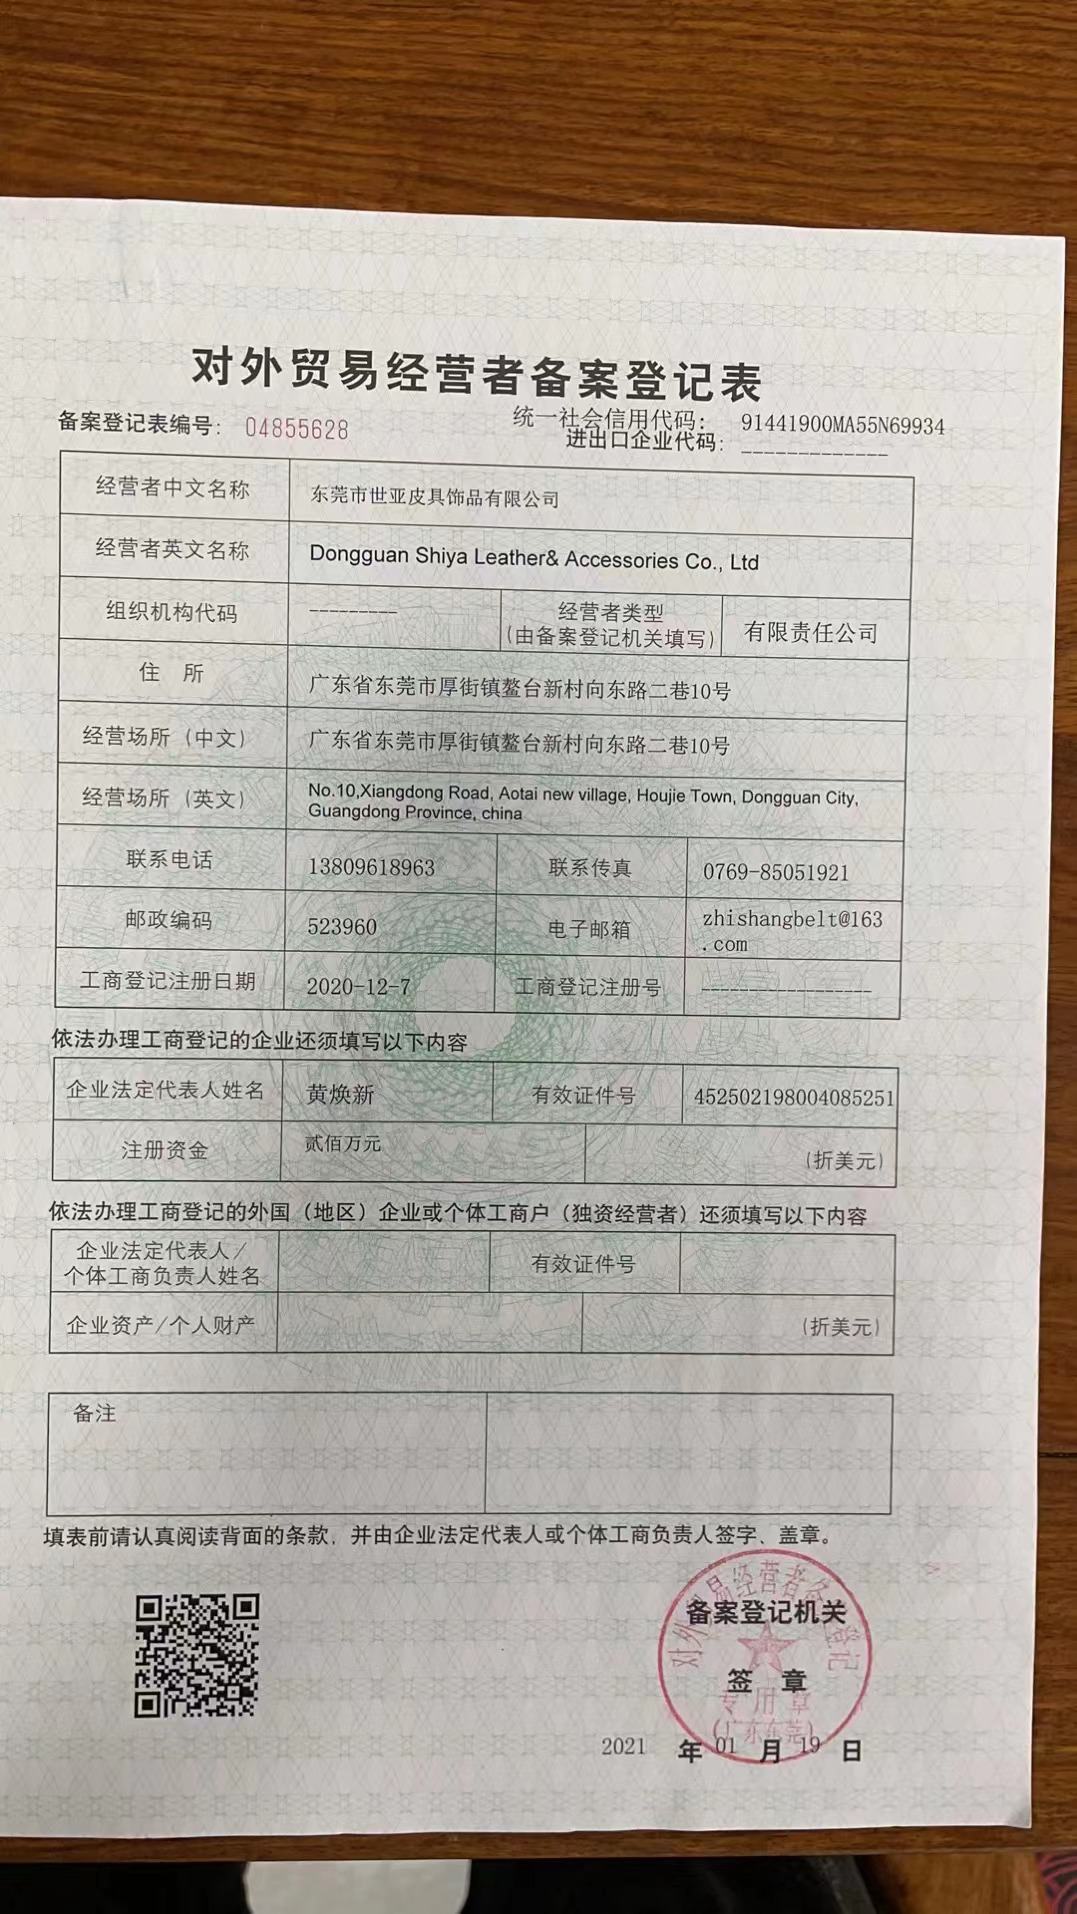 对外贸易经营者备案登记表
备案登记表编号： 04855628
统一社会信用代码： 91441900MA55N69934
进出口企业代码： -------------
经营者中文名称 东莞市世亚皮具饰品有限公司
经营者英文名称 Dongguan Shiya Leather& Accessories Co., Ltd
组织机构代码 --------- 经营者类型 (由备案登记机关填写) 有限责任公司
住 所 广东省东莞市厚街镇鳌台新村向东路二巷10号
经营场所（中文） 广东省东莞市厚街镇鳌台新村向东路二巷10号
经营场所（英文） No.10,Xiangdong Road, Aotai new village, Houjie Town, Dongguan City,
Guangdong Province, china
联系电话 13809618963 联系传真 0769-85051921
邮政编码 523960 电子邮箱 zhishangbelt@163
.com
工商登记注册日期 2020-12-7 工商登记注册号 ------------------
依法办理工商登记的企业还须填写以下内容
企业法定代表人姓名 黄焕新 有效证件号 452502198004085251
注册资金 贰佰万元 (折美元)
依法办理工商登记的外国（地区）企业或个体工商户（独资经营者）还须填写以下内容
企业法定代表人/
个体工商负责人姓名 有效证件号
企业资产/个人财产 (折美元)
备注
填表前请认真阅读背面的条款，并由企业法定代表人或个体工商负责人签字、盖章。
对外贸易经营者备案登记
备案登记机关
签 章
专用章
(广东东莞)
2021 年 01 月 19 日